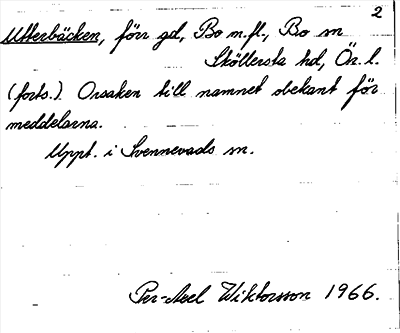 2
Utterbäcken, förr gd, Bo m.fl., Bo sn
Sköllersta hd, Ör. l.
(forts.). Orsaken till namnet obekant för
meddelarna.
Uppt. i Svennevads sn.
Per-Axel Wiktorsson 1966.